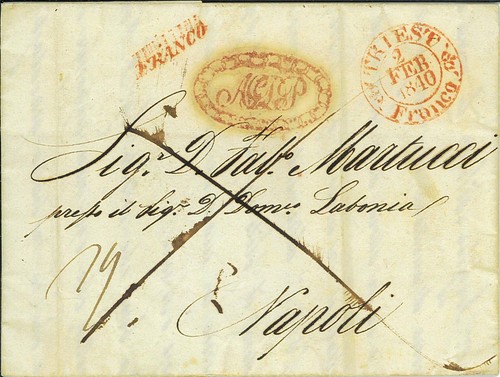 FRANCO
AGDP
TRIEST
2
FEB
1840
Franco
Sig.r D. Raff.o Martucci
presso il Sig.r D. Dom.co Labonia
Napoli